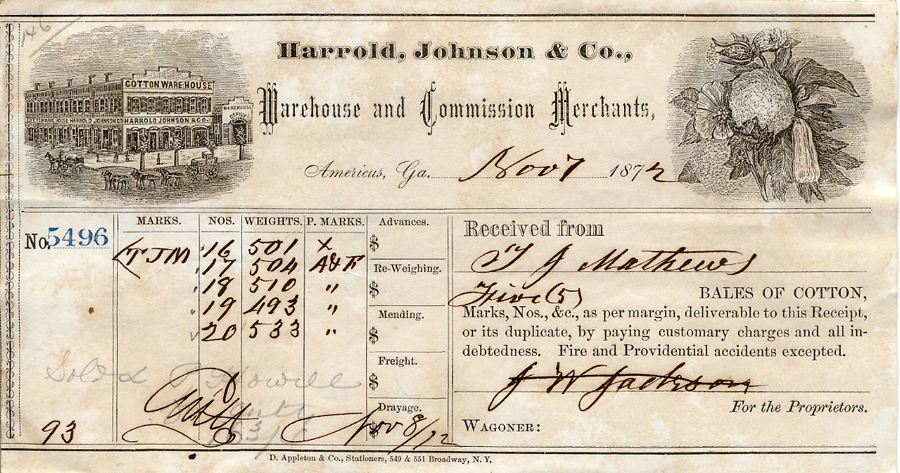 146
Harrold, Johnson & Co.,
COTTON WAREHOUSE
HARROLD JOHNSON & CO.
Warehouse and Commission Merchants,
Americus, Ga. Nov 7 1872
No. 5496
MARKS. NOS. WEIGHTS. P. MARKS.
TJM 16 501 X
17 504 A&F
18 510 "
19 493 "
20 533 "
Sold
Howell
93
Nov 8/72
Advances.
$
Re-Weighing.
$
Mending.
$
Freight.
$
Drayage.
$
Received from
T J Mathews
Five (5) BALES OF COTTON,
Marks, Nos., &c., as per margin, deliverable to this Receipt,
or its duplicate, by paying customary charges and all in-
debtedness. Fire and Providential accidents excepted.
J W Jackson
For the Proprietors.
WAGONER:
D. Appleton & Co., Stationers, 549 & 551 Broadway, N. Y.